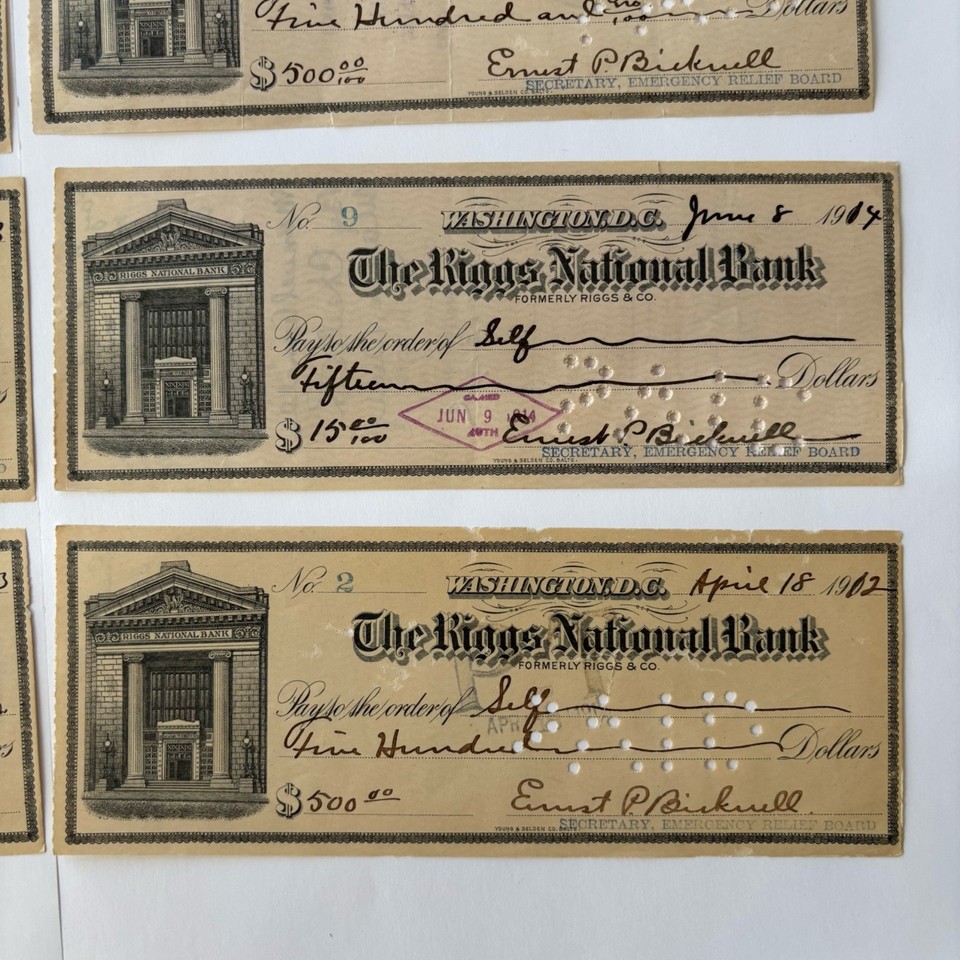 Five Hundred and no/100 Dollars
$500 00/100
Ernest P. Bicknell
SECRETARY, EMERGENCY RELIEF BOARD
YOUNG & SELDEN CO.
No. 9 WASHINGTON, D.C. June 8 1914
RIGGS NATIONAL BANK
The Riggs National Bank
FORMERLY RIGGS & CO.
Pay to the order of Self
Fifteen Dollars
JUN 9 1914
$15 00/100
Ernest P. Bicknell
SECRETARY, EMERGENCY RELIEF BOARD
YOUNG & SELDEN CO. BALTO.
No. 2 WASHINGTON, D.C. April 18 1912
RIGGS NATIONAL BANK
The Riggs National Bank
FORMERLY RIGGS & CO.
Pay to the order of Self
Five Hundred Dollars
$500 00
Ernest P. Bicknell
SECRETARY, EMERGENCY RELIEF BOARD
YOUNG & SELDEN CO.